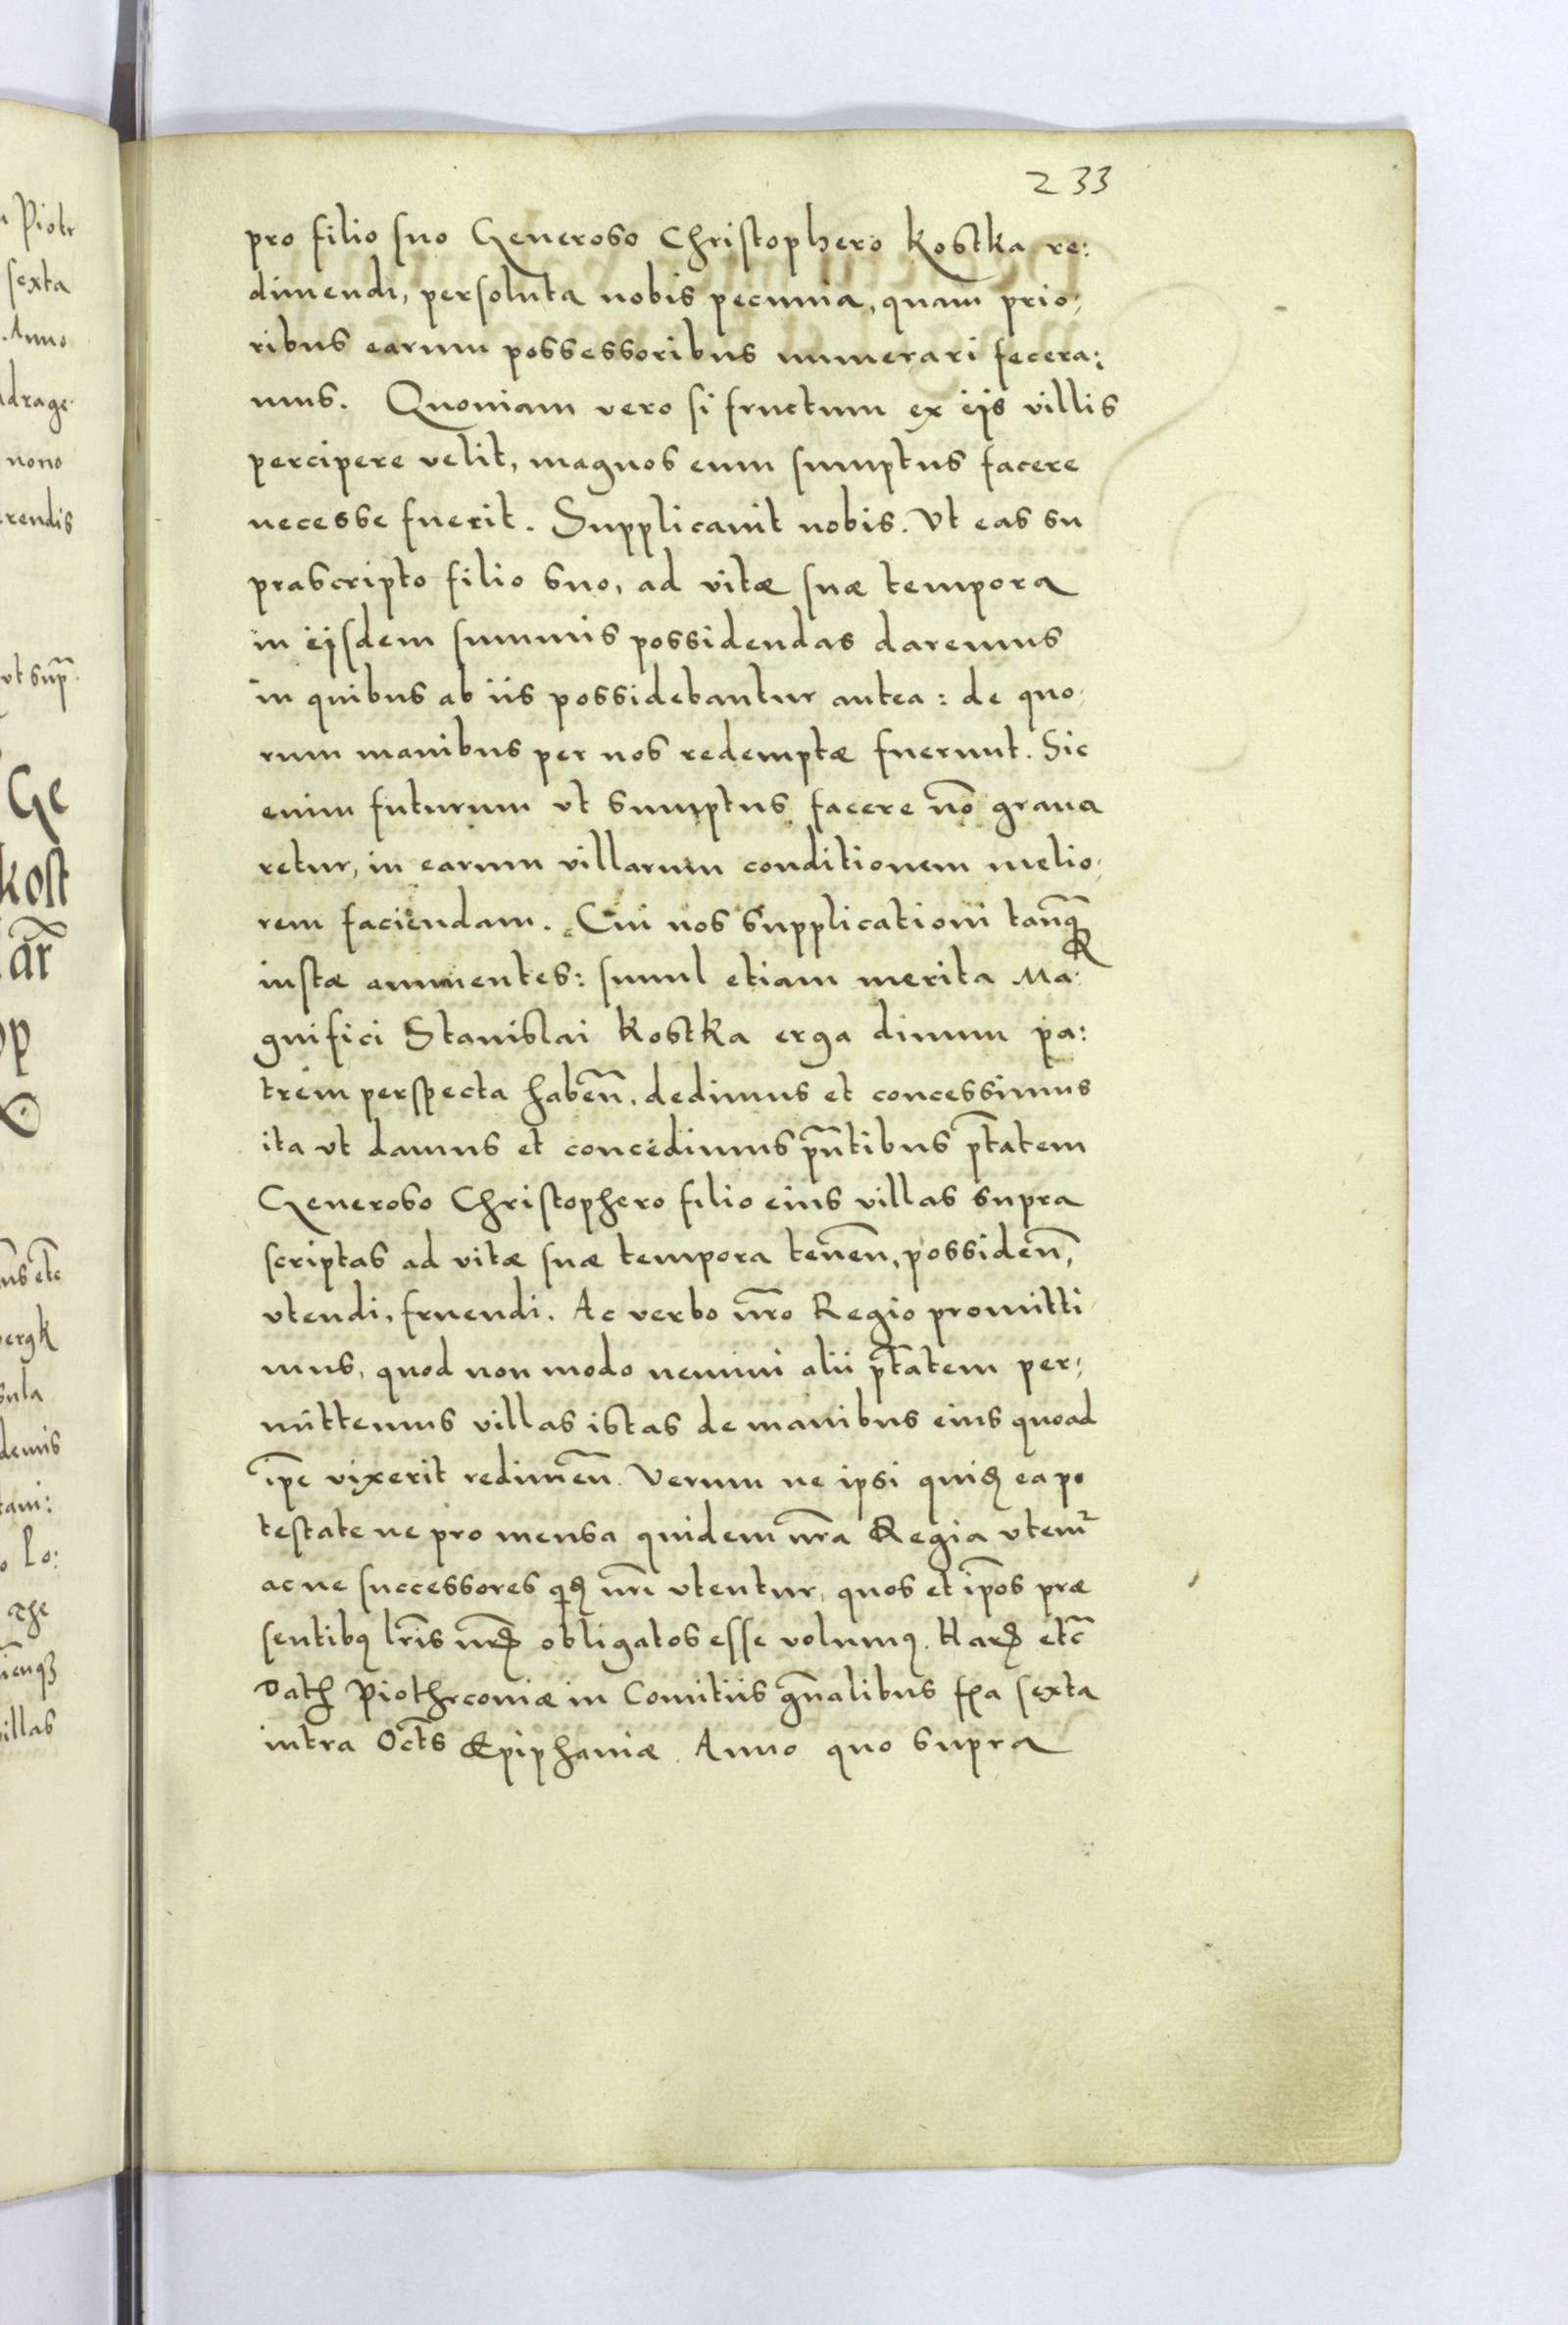 233
pro filio suo Generoso Christophero Kostka re:
dimendi, persoluta nobis pecunia, quam prio,
ribus earum possessoribus numerari fecera:
mus. Quoniam vero si fructum ex iis villis
percipere velit, magnos eum sumptus facere
necesse fuerit. Supplicauit nobis. Vt eas su
prascripto filio suo, ad vitæ suæ tempora
in iisdem summis possidendas daremus
in quibus ab iis possidebantur antea: de quo,
rum manibus per nos redemptæ fuerunt. Sic
enim futurum vt sumptus facere nō graua
retur, in earum villarum conditionem melio,
rem faciendam. Cui nos supplicationi tanq̃
iustæ annuentes: simul etiam merita Ma:
gnifici Stanislai Kostka erga diuum pa:
trem perspecta habeñ. dedimus et concessimus
ita vt damus et concedimus pñtibus ptatem
Generoso Christophero filio eius villas supra
scriptas ad vitæ suæ tempora teneñ, possideñ,
vtendi, fruendi. Ac verbo nr̃o Regio promitti,
mus, quod non modo nemini alii ptatem per,
mittemus villas istas de manibus eius quoad
ip̄e vixerit redimeñ. Verum ne ipsi quidꝫ ea po
testate ne pro mensa quidem nr̃a Regia vtemr
ac ne successores qdꝫ nr̃i vtentur, quos et ip̄os præ
sentibꝰ lr̃is nr̃is obligatos esse volumꝰ. Harꝝ etc̃
Datꝫ Piothrcouiæ in Comitiis gñalibus fr̃a sexta
intra Oct̃s Epiphaniæ. Anno quo supra
n Piotr
sexta
. Anno
adrage
nono
erendis
vt sup̃.
Ge
kost
ar̃
op
ns etc̃
bergk
sula
demis
tani:
o lo:
The
ienqꝫ
villas